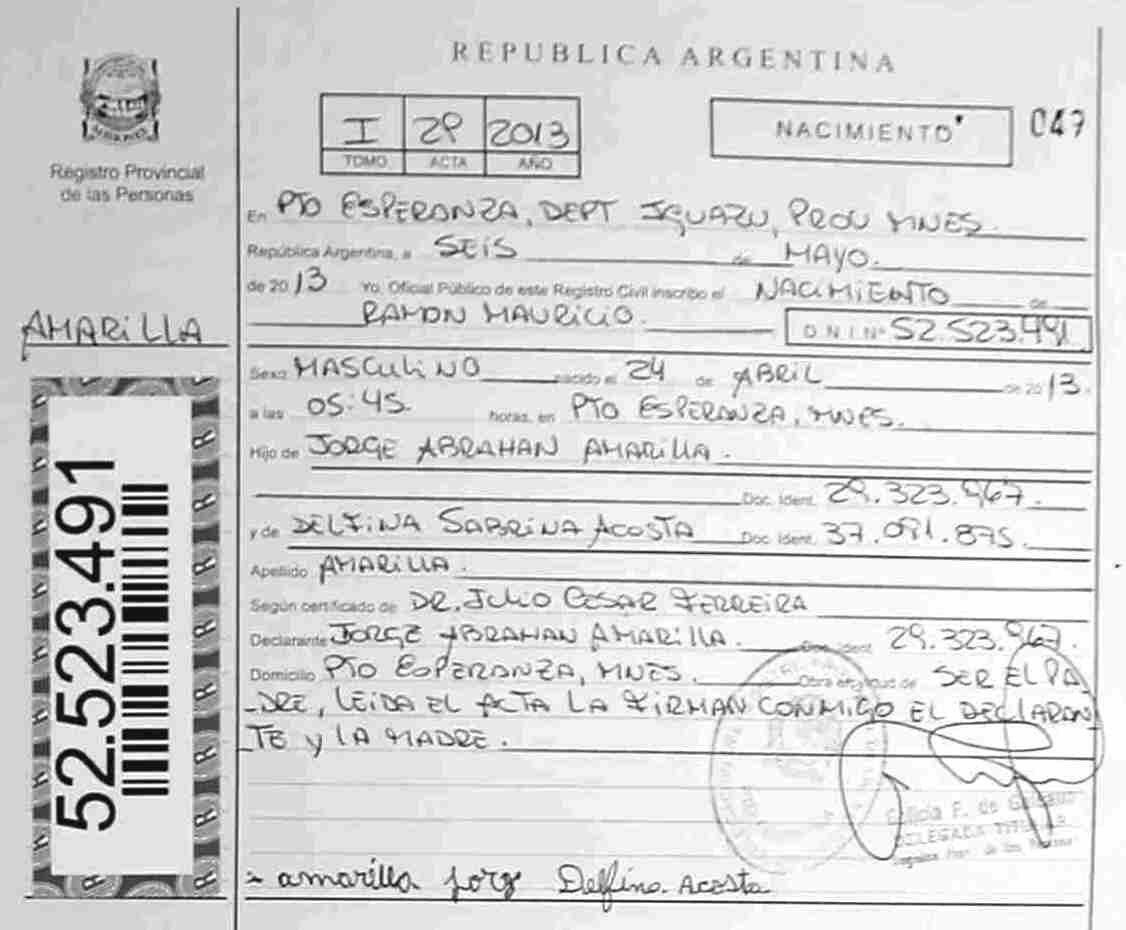 REPUBLICA ARGENTINA
Registro Provincial
de las Personas
I 29 2013
TOMO ACTA AÑO
NACIMIENTO 047
En PTO ESPERANZA, DEPT IGUAZU, PROV MNES.
República Argentina, a SEIS de MAYO.
de 2013 Yo, Oficial Público de este Registro Civil inscribo el NACIMIENTO de
RAMON MAURICIO. D N I Nº 52.523.491
AMARILLA
Sexo MASCULINO nacido el 24 de ABRIL de 2013.
a las 05:45. horas, en PTO ESPERANZA, MNES.
Hijo de JORGE ABRAHAN AMARILLA.
Doc. Ident. 29.323.967.
y de DELFINA SABRINA ACOSTA Doc. Ident. 37.091.875.
Apellido AMARILLA.
Según certificado de DR. JULIO CESAR FERREIRA
Declarante JORGE ABRAHAN AMARILLA. Doc. Ident. 29.323.967.
Domicilio PTO ESPERANZA, MNES. Obra en virtud de SER EL PA
DRE, LEIDA EL ACTA LA FIRMAN CONMIGO EL DECLARAN
TE Y LA MADRE.
52.523.491
F. de
DELEGADA TITULAR
amarilla jorg Delfina Acosta